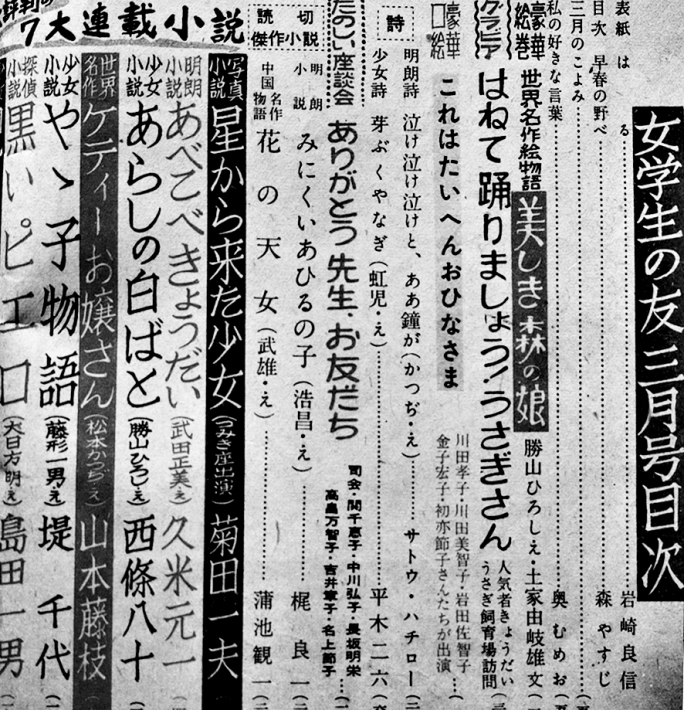 女学生の友 三月号目次
表紙 は る 岩崎良信
目次 早春の野べ 森やすじ
三月のこよみ
私の好きな言葉 奥むめお
豪華絵巻 世界名作絵物語 美しき森の娘 勝山ひろしえ・土家由岐雄文
グラビア はねて踊りましょう!うさぎさん 人気者きょうだい うさぎ飼育場訪問
豪華口絵 これはたいへんおひなさま 川田孝子 川田美智子 岩田佐智子 金子宏子 初亦節子さんたちが出演
詩
明朗詩 泣け泣け泣けと、ああ鐘が(かつぢ・え) サトウ・ハチロー
少女詩 芽ぶくやなぎ(虹児・え) 平木二六
たのしい座談会 ありがとう先生、お友だち 司会・間千恵子・中川弘子・長坂明栄 高畠万智子・吉井章子・名上節子
読切傑作小説
明朗小説 みにくいあひるの子(浩昌・え) 梶良一
中国名作物語 花の天女(武雄・え) 蒲池観一
評判の7大連載小説
写真小説 星から来た少女(つみき座出演) 菊田一夫
明朗小説 あべこべきょうだい(武田正美え) 久米元一
少女小説 あらしの白ばと(勝山ひろしえ) 西條八十
世界名作 ケティーお嬢さん(松本かつぢえ) 山本藤枝
少女小説 やゝ子物語(藤形一男え) 堤千代
探偵小説 黒いピエロ(大日方明え) 島田一男